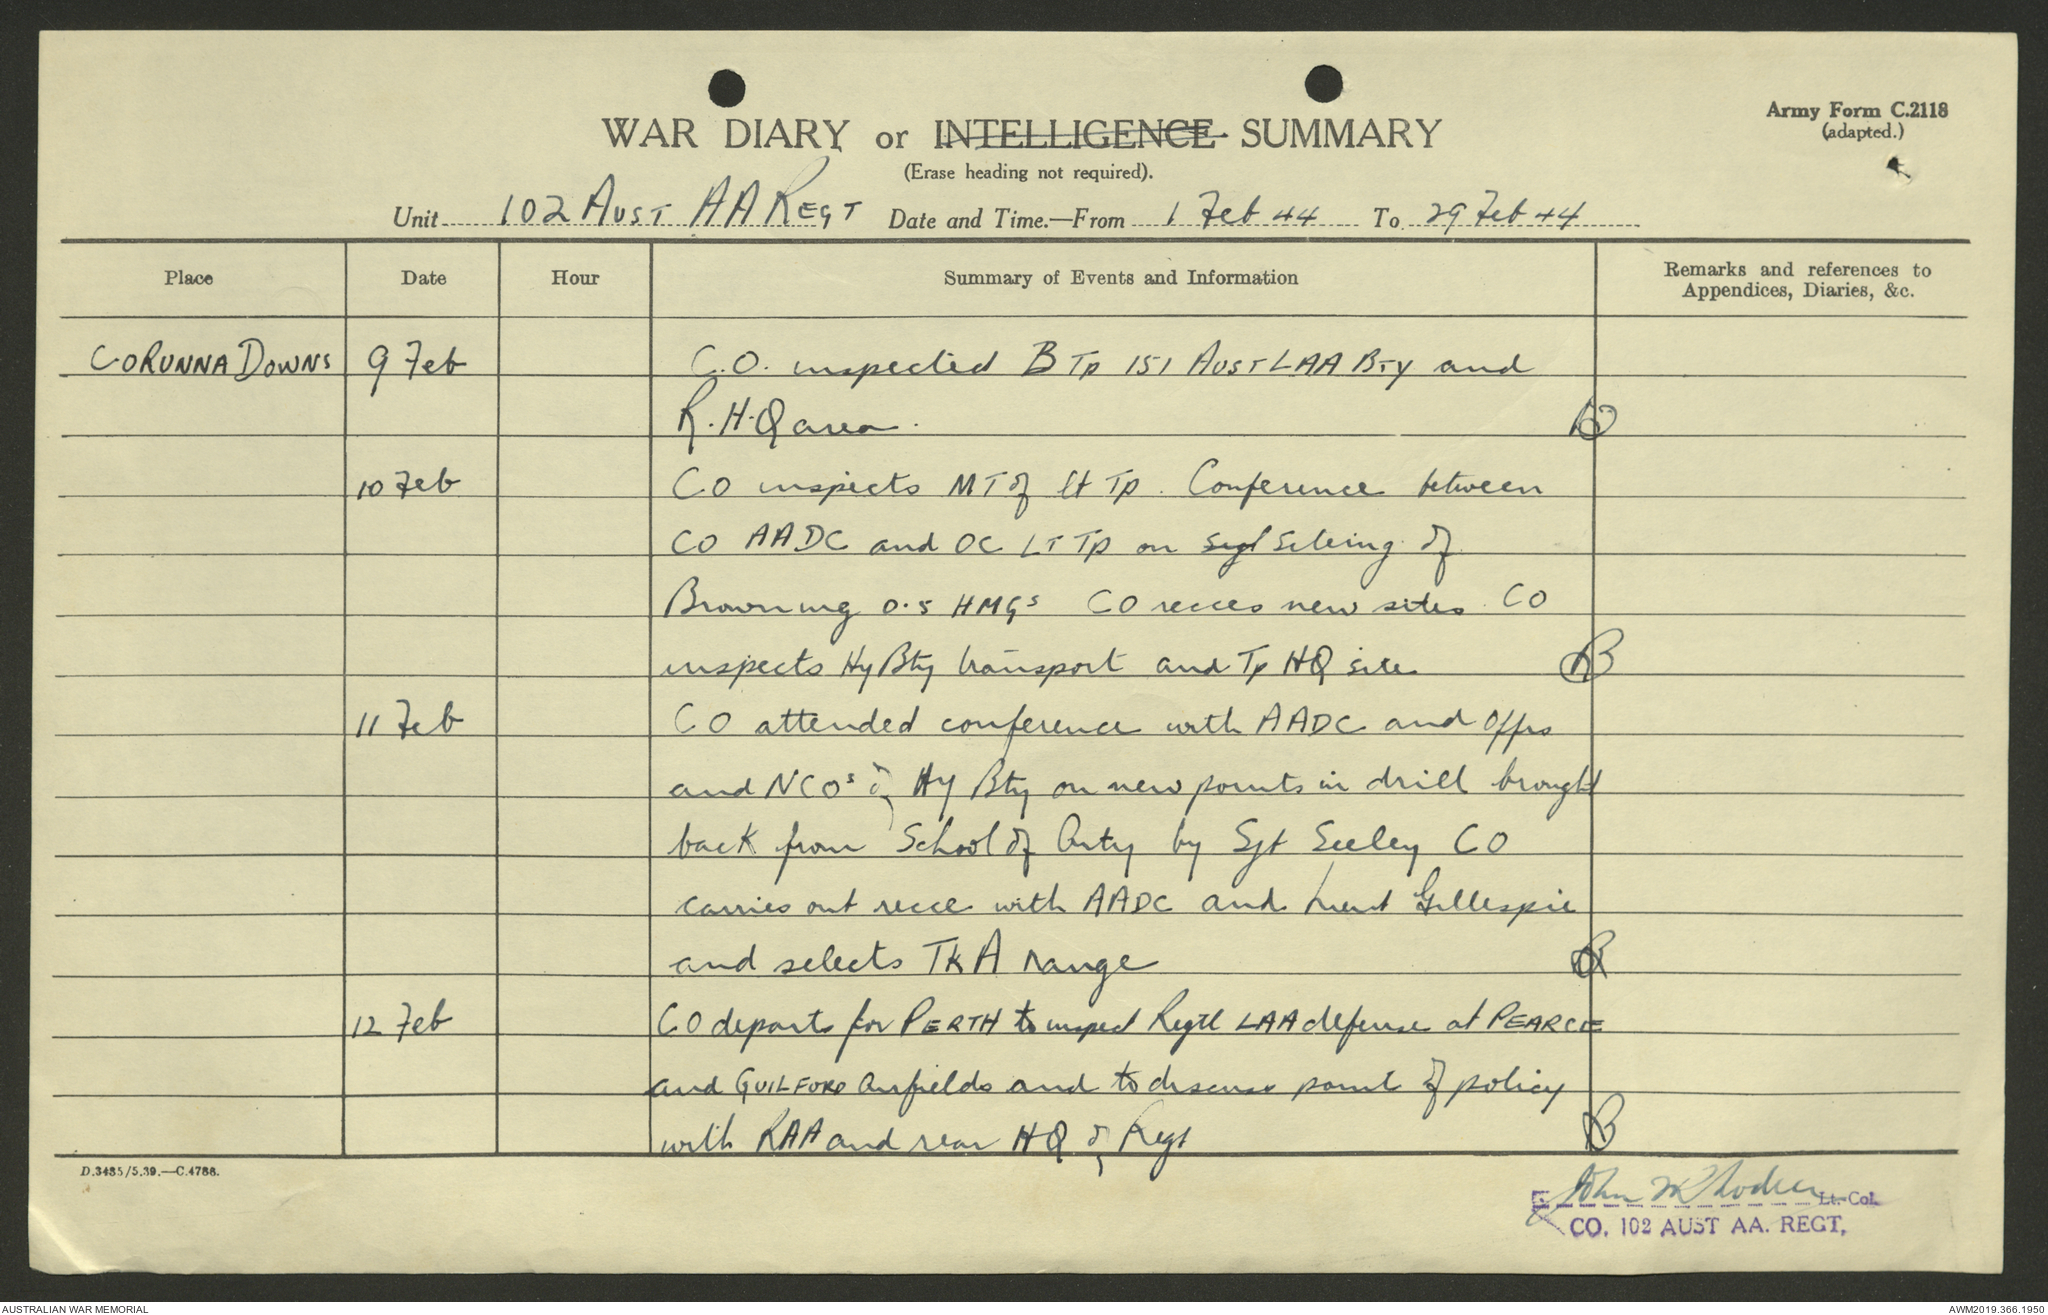 Army Form C.2118
(adapted.)
WAR DIARY or INTELLIGENCE SUMMARY
(Erase heading not required).
Unit 102 AUST AA REGT Date and Time.—From 1 Feb 44 To 29 Feb 44
Place Date Hour Summary of Events and Information Remarks and references to
Appendices, Diaries, &c.
CORUNNA DOWNS 9 Feb C.O. inspected B Tp 151 AUST LAA BTY and
R.H.Q area.
10 Feb CO inspects MT of Lt Tp. Conference between
CO AADC and OC LT Tp on siting of
Browning 0.5 HMGs CO recces new sites. CO
inspects Hy Bty transport and Tp HQ site
11 Feb CO attended conference with AADC and Offrs
and NCOs of Hy Bty on new points in drill brought
back from School of Arty by Sgt Seeley CO
carries out recce with AADC and Lieut Gillespie
and selects TKA range
12 Feb CO departs for PERTH to inspect Regtl LAA defense at PEARCE
and GUILFORD Airfields and to discuss point of policy
with RAA and rear HQ of Regt
D.3485/5.39.—C.4788.
Lt.-Col.
CO. 102 AUST AA. REGT.
AUSTRALIAN WAR MEMORIAL
AWM2019.366.1950